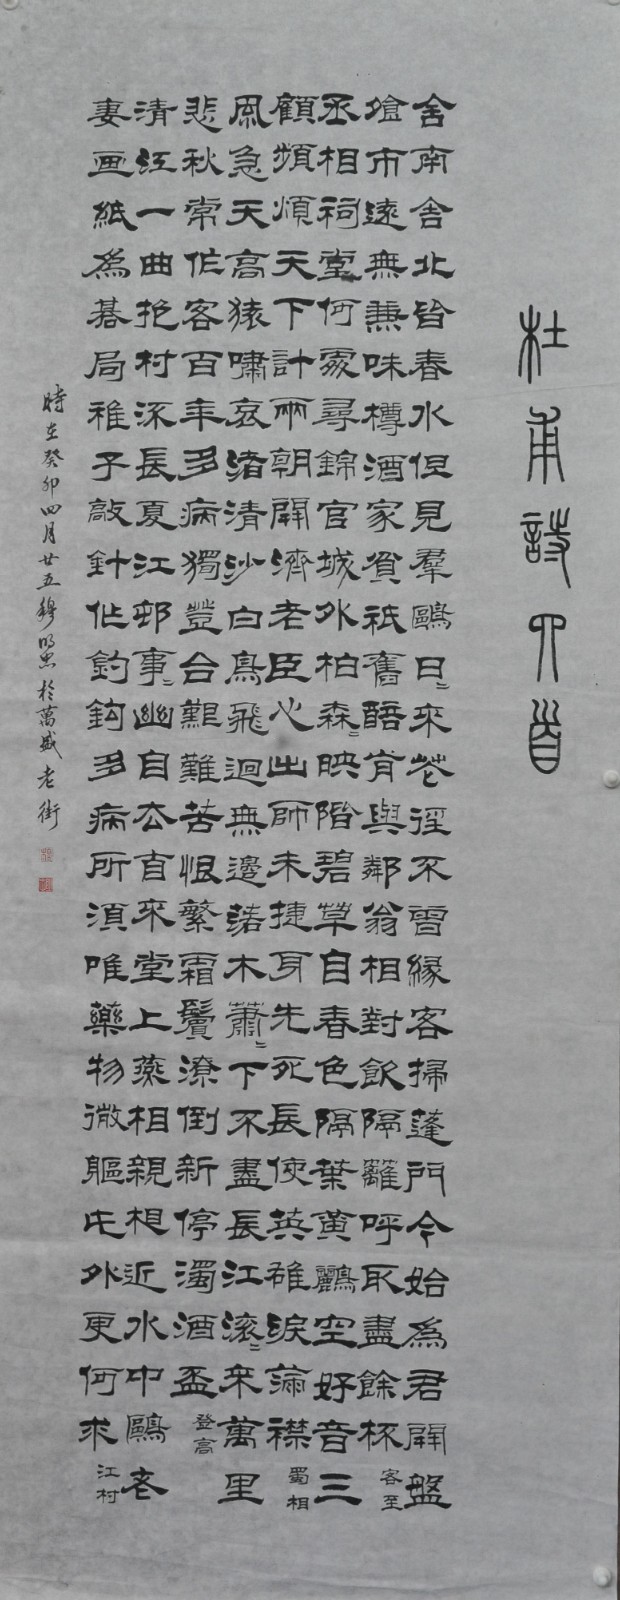 杜甫詩四首
舍南舍北皆春水但見羣鷗日〻來花徑不曾緣客掃蓬門今始為君開盤
飧市遠無兼味樽酒家貧祇舊醅肯與鄰翁相對飲隔籬呼取盡餘杯 客至
丞相祠堂何處尋錦官城外柏森〻映階碧草自春色隔葉黃鸝空好音三
顧頻煩天下計兩朝開濟老臣心出師未捷身先死長使英雄淚滿襟 蜀相
風急天高猿嘯哀渚清沙白鳥飛迴無邊落木蕭〻下不盡長江滾〻來萬里
悲秋常作客百年多病獨登台艱難苦恨繁霜鬢潦倒新停濁酒盃 登高
清江一曲抱村流長夏江邨事〻幽自去自來堂上燕相親相近水中鷗老
妻画紙為碁局稚子敲針作釣鉤多病所須唯藥物微軀此外更何求 江村
時在癸卯四月廿五穆照於萬盛老街